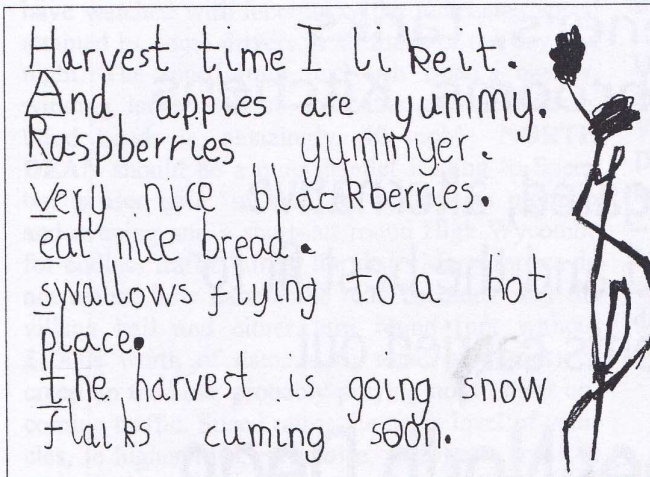 Harvest time I likeit.
And apples are yummy.
Raspberries yummyer.
very nice blackberries.
eat nice bread.
swallows flying to a hot
place.
the harvest is going snow
flaiks cuming soon.